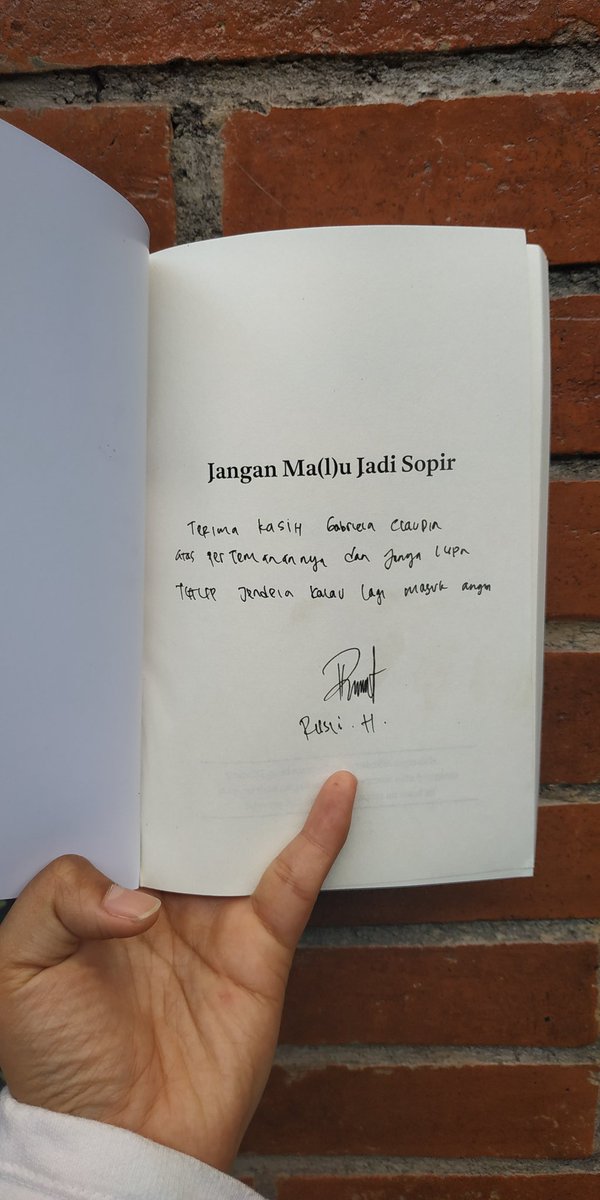 Jangan Ma(l)u Jadi Sopir
Terima kasih Gabriela Claudia
atas pertemanannya dan janga lupa
tutup jendela kalau lagi masuk angin
Rusli . H .